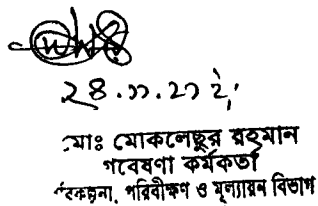 ২৪.১১.২১ ই.
মোঃ মোকলেছুর রহমান
গবেষণা কর্মকর্তা
পরিকল্পনা, পরিবীক্ষণ ও মূল্যায়ন বিভাগ